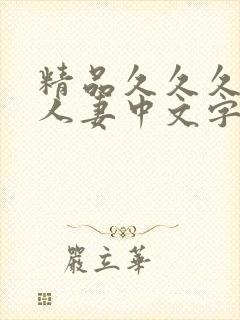 精品久久久
人妻中文字
嚴立華